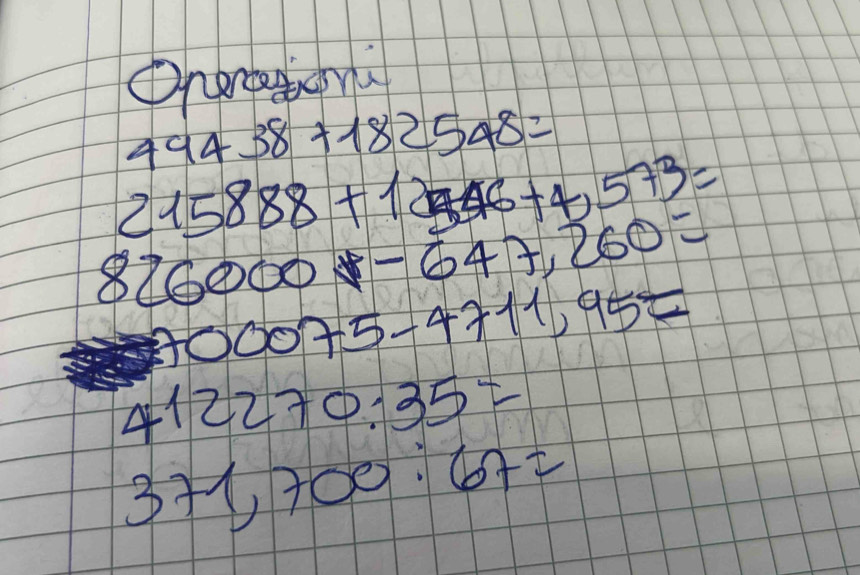 Operazioni
49438+182548=
215888+12546+4,573=
826000-647,260=
700075-4711,95=
412270:35=
371,700:67=